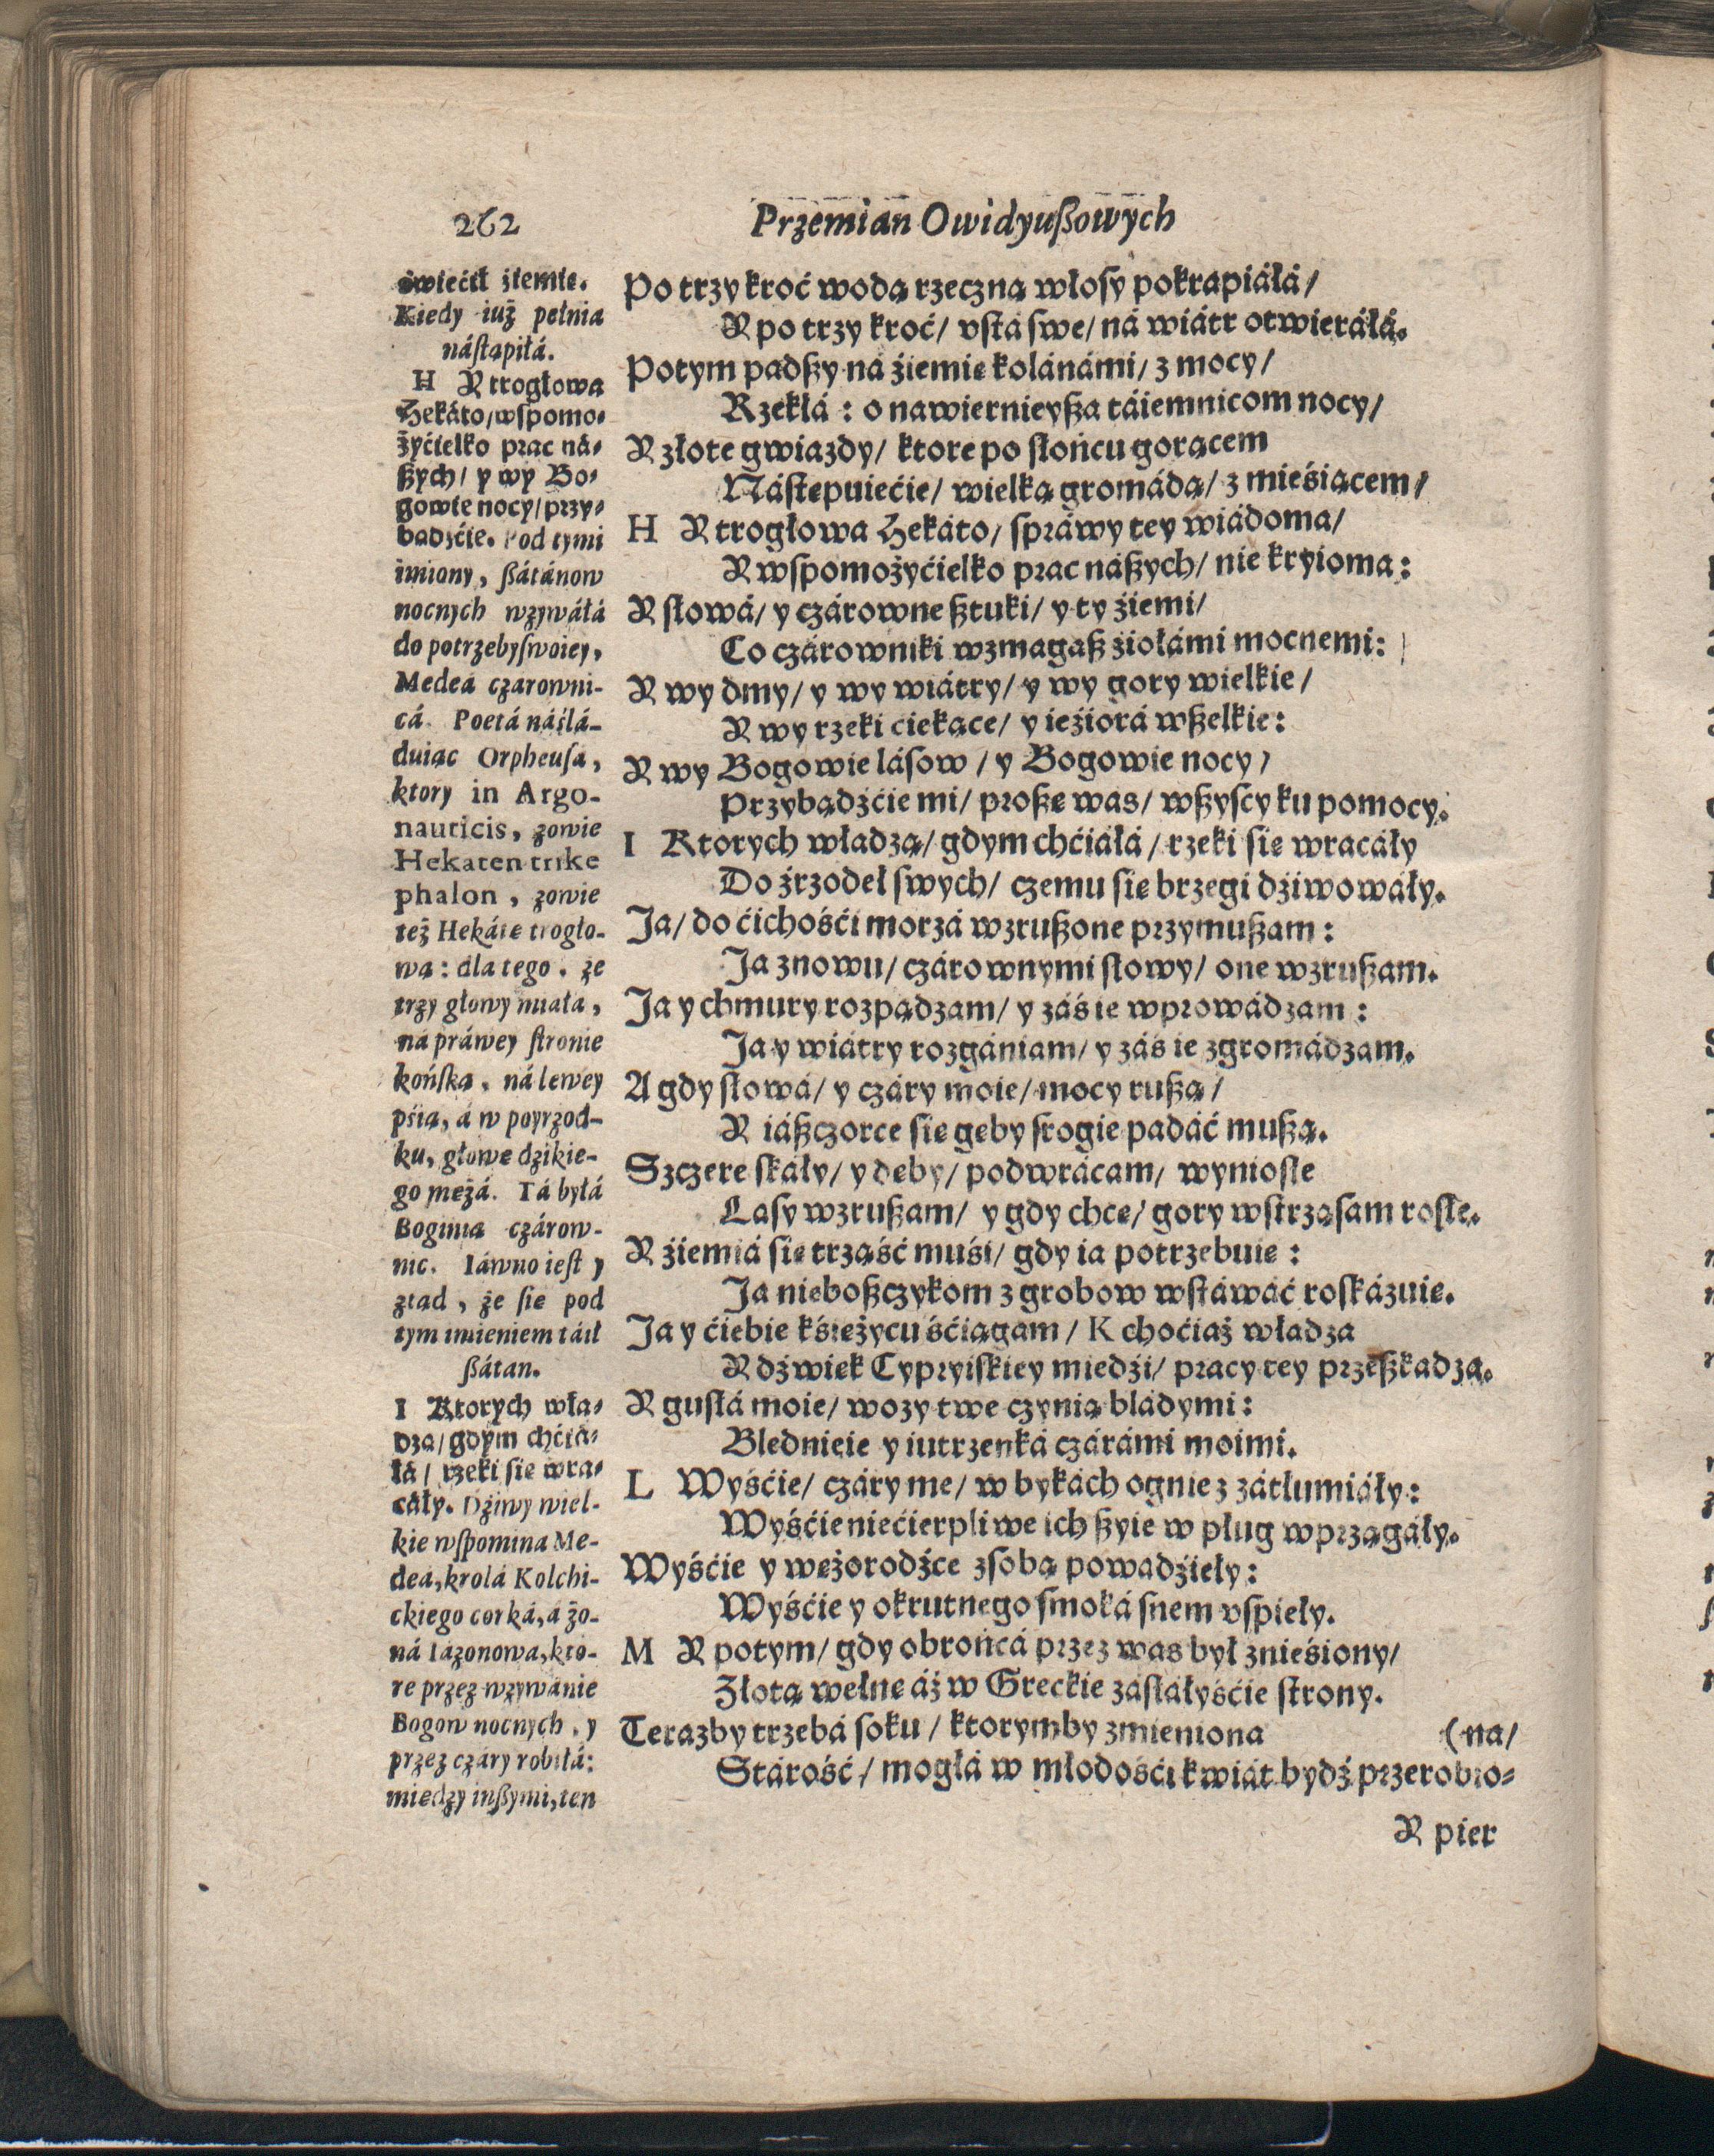 262
Przemian Owidyußowych
świećił źiemie.
Kiedy iuż pełnia
nástąpiłá.
H Y trogłowa
Hekáto/wspomo-
życielko prac ná-
ßych/ y wy Bo-
gowie nocy/przy-
bądźćie. Pod tymi
imiony, ßátánow
nocnych wzywáłá
do potrzeby swoiey,
Medea czarowni-
cá. Poetá náślá-
duiąc Orpheusa,
ktory in Argo-
nauticis, zowie
Hekaten trike
phalon, zowie
też Hekáte trogło-
wą: dla tego, że
trzy głowy miała,
ná práwey stronie
końską, ná lewey
pśią, á w poyrzod-
ku, głowe dzikie-
go mężá. Tá byłá
Boginia czárow-
nic. Iáwno iest y
ztąd, że sie pod
tym imieniem táił
ßátan.
I Ktorych wła-
dzą/gdym chćiá-
łá/ rzeki sie wra-
cáły. Dźiwy wiel-
kie wspomina Me-
deá, krolá Kolchi-
ckiego corká, á żo-
ná Iázonowa, kto-
re przez wzywánie
Bogow nocnych, y
przez czáry robiłá:
miedzy inßymi, ten
Po trzy kroć wodą rzeczną włosy pokrapiáłá/
Y po trzy kroć/ vstá swe/ ná wiátr otwieráłá.
Potym padßy ná źiemie kolánámi/ z mocy/
Rzekłá: o nawiernieyßa táiemnicom nocy/
Y złote gwiazdy/ ktore po słońcu gorącem
Nástepuiećie/ wielką gromádą/ z mieśiącem/
H Y trogłowa Hekáto/ spráwy tey wiádoma/
Y wspomożyćielko prac náßych/ nie kryioma:
Y słowá/ y czárowne ßtuki/ y ty źiemi/
Co czárowniki wzmagaß źiołámi mocnemi:
Y wy dmy/ y wy wiátry/ y wy gory wielkie/
Y wy rzeki ciekące/ y ieźiorá wßelkie:
Y wy Bogowie lásow/ y Bogowie nocy/
Przybądźćie mi/ proße was/ wßyscy ku pomocy.
I Ktorych władzą/ gdym chćiáłá/ rzeki sie wracáły
Do źrzodeł swych/ czemu sie brzegi dźiwowáły.
Ja/ do ćichośći morzá wzrußone przymußam:
Ja znowu/ czárownymi słowy/ one wzrußam.
Ja y chmury rozpądzam/ y záś ie wprowádzam:
Ja y wiátry rozgániam/ y záś ie zgromádzam.
A gdy słowá/ y czáry moie/ mocy rußą/
Y iáßczorce sie geby srogie padáć mußą.
Szczere skáły/ y deby/ podwrácam/ wyniosłe
Lasy wzrußam/ y gdy chce/ gory wstrząsam rosłe.
Y źiemiá sie trząść muśi/ gdy ia potrzebuie:
Ja nieboßczykom z grobow wstáwáć roskázuie.
Ja y ćiebie kśieżycu śćiągam/ K choćiaż władza
Y dźwiek Cypryiskiey miedźi/ pracy tey przeßkadza.
Y gusłá moie/ wozy twe czynią bládymi:
Blednieie y iutrzenká czárámi moimi.
L Wyśćie/ czáry me/ w bykách ogniez zátłumiáły:
Wyśćie niećierpliwe ich ßyie w pług wprzągáły.
Wyśćie y weżorodźce z sobą powadźieły:
Wyśćie y okrutnego smoká snem vspieły.
M Y potym/ gdy obrońcá przez was był znieśiony/
Złotą wełne áż w Greckie zásłályśćie strony.
Terazby trzebá soku/ ktorymby zmieniona
(na/
Stárość/ mogłá w młodośći kwiát bydź przerobio-
Y pier